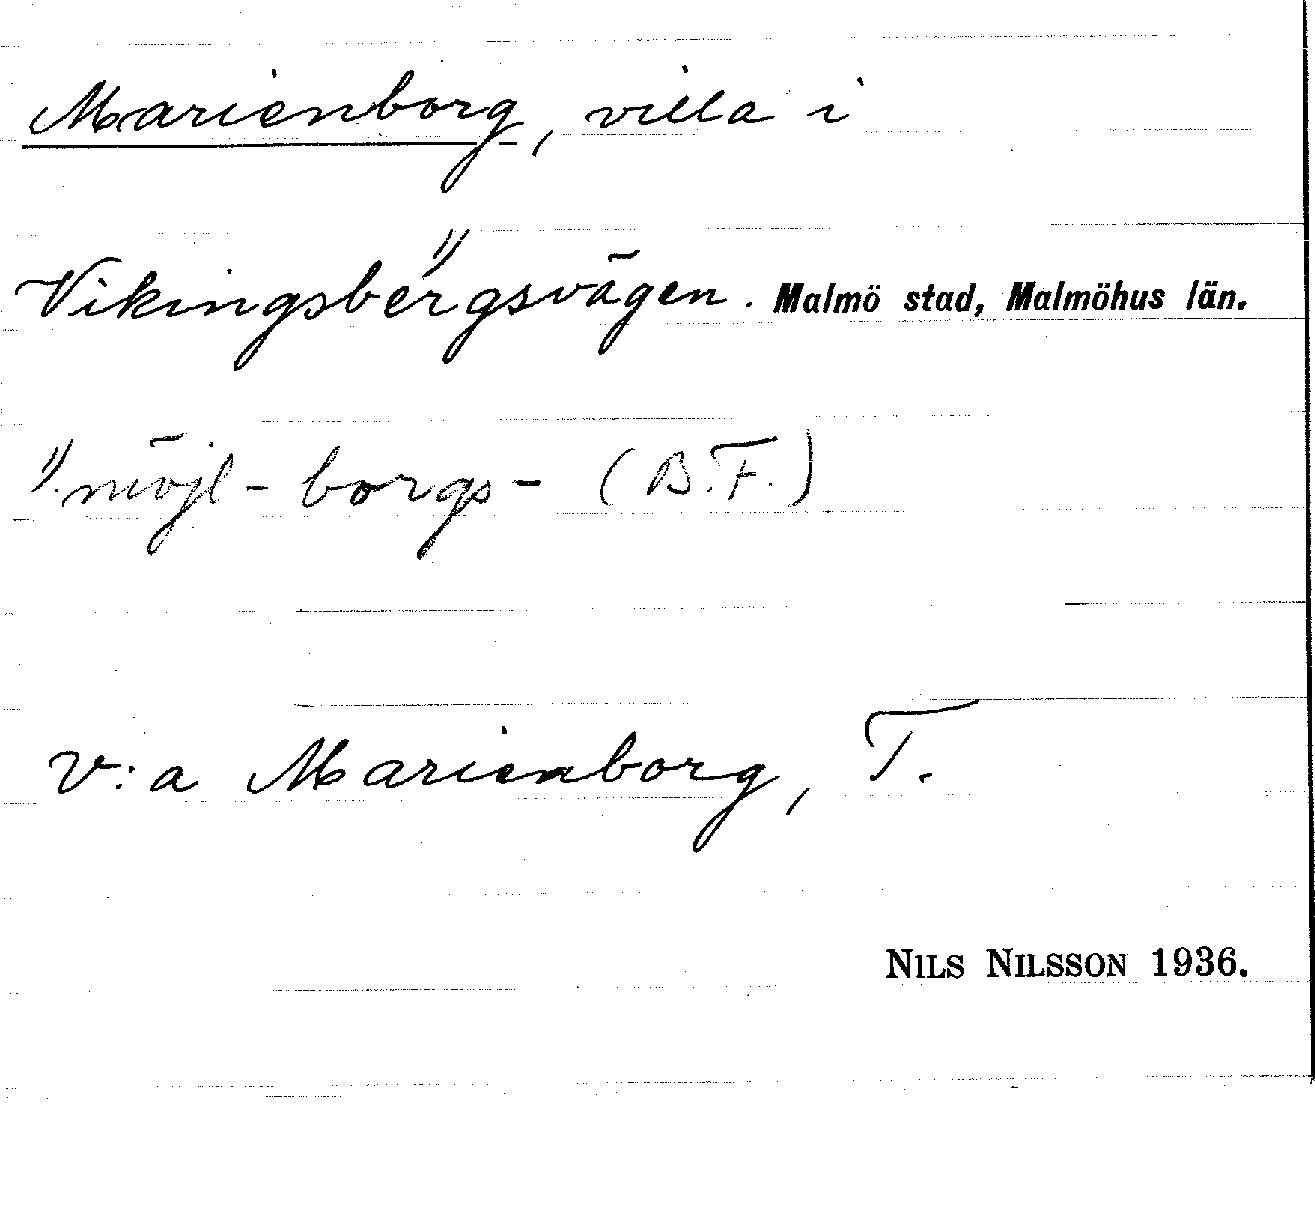 Marienborg, villa i
Vikingsbergsvägen. Malmö stad, Malmöhus län.
möjl - borgs- (B.F.)
v:a Marienborg, T.
NILS NILSSON 1936.